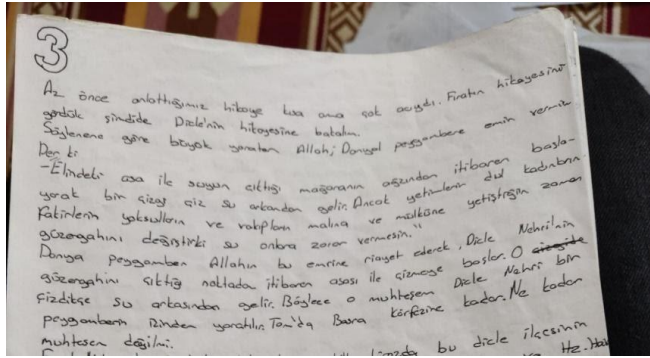 3
Az önce anlattığımız hikaye kısa ama çok acıydı. Fıratın hikayesini
gördük şimdide Dicle'nin hikayesine bakalım.
Söylenene göre büyük yaratan Allah; Danyal peygambere emin vermiş
Der ki
-Elindeki asa ile suyun çıktığı mağaranın ağzından itibaren başla-
yarak bir çizgi çiz su arkandan gelir. Ancak yetimlerin dul kadınların
fakirlerin yoksulların ve vakıpların malına ve mülküne yetiştiğin zaman
güzergahını değiştirki su onlara zarar vermesin."
Danya peygamber Allahın bu emrine riayet ederek, Dicle Nehri'nin
güzergahını çıktığı noktada itibaren asası ile çizmeye başlar. O
çizdikçe su arkasından gelir. Böylece o muhteşem Dicle Nehri bin
peygamberin izinden yaratılır. Tam'da Basra körfezine kadar. Ne kadar
muhteşem değilmi.
bu dicle ilçesinin
Hz.